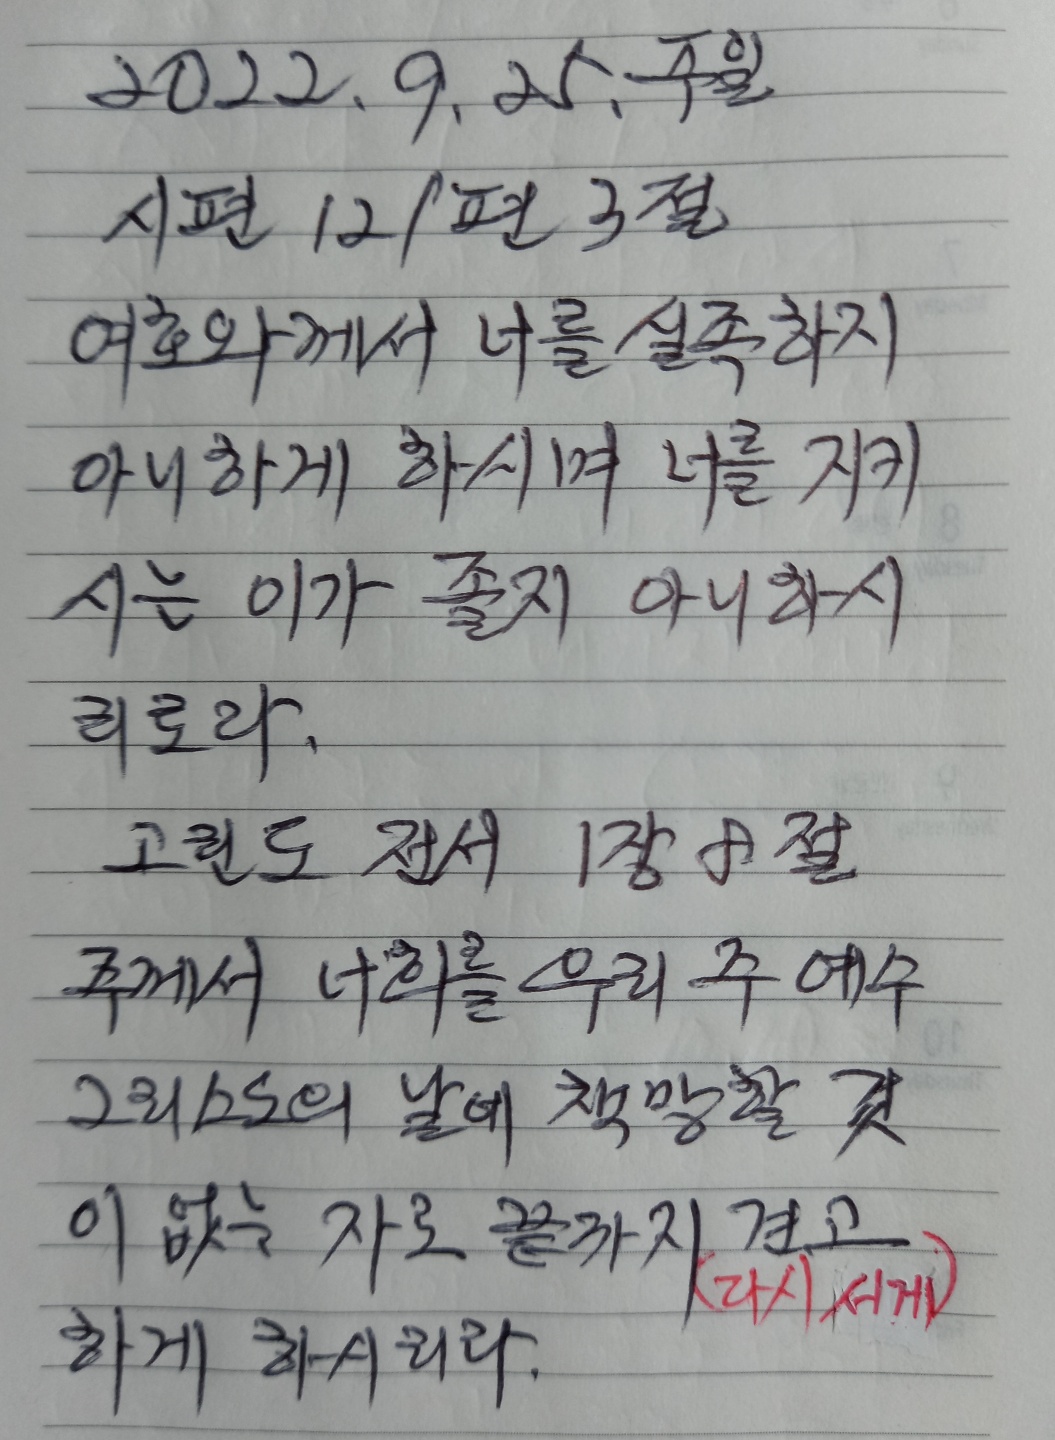 2022. 9. 25. 주일
시편 121편 3절
여호와께서 너를 실족하지
아니하게 하시며 너를 지키
시는 이가 졸지 아니하시
리로다.
고린도 전서 1장 8절
주께서 너희를 우리 주 예수
그리스도의 날에 책망할 것
이 없는 자로 끝까지 견고
(다시 서게)
하게 하시리라.